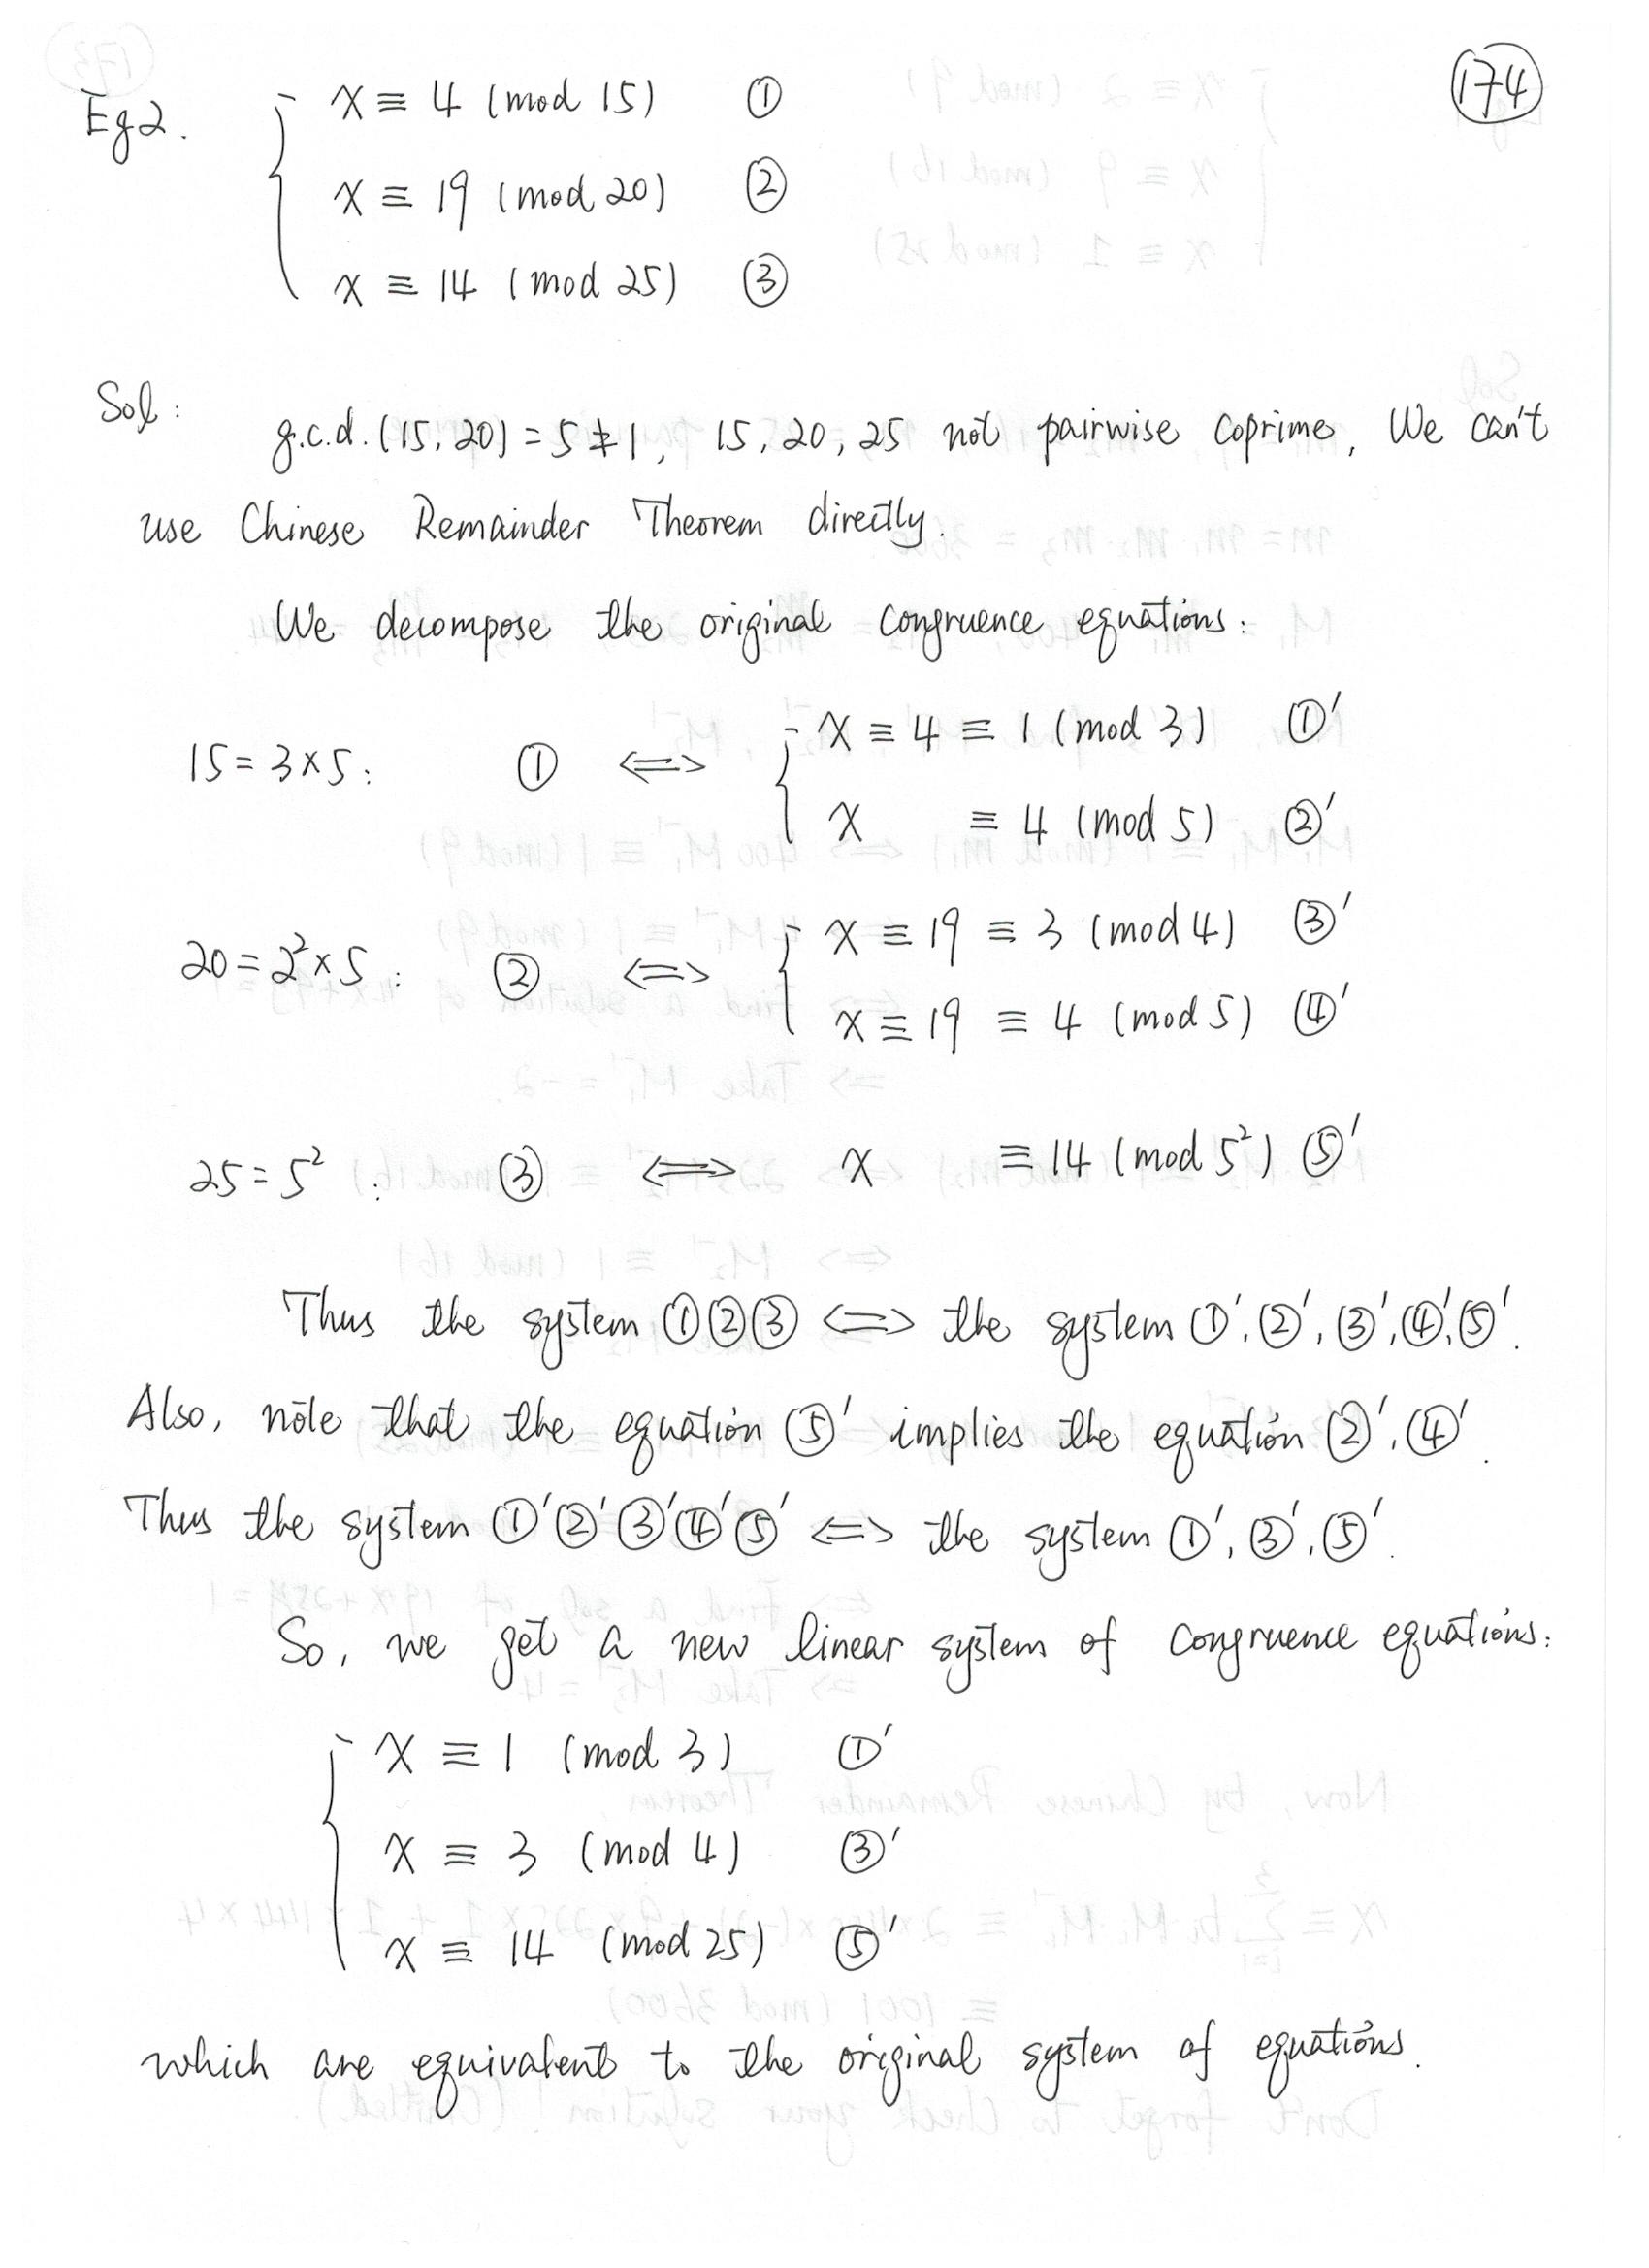 174
Eg2. x ≡ 4 (mod 15) ①
x ≡ 19 (mod 20) ②
x ≡ 14 (mod 25) ③
Sol:
g.c.d. (15, 20) = 5 ≠ 1, 15, 20, 25 not pairwise coprime, We can't
use Chinese Remainder Theorem directly.
We decompose the original congruence equations:
15 = 3 × 5 : ① <=> { x ≡ 4 ≡ 1 (mod 3) ①'
x ≡ 4 (mod 5) ②'
20 = 2² × 5 : ② <=> { x ≡ 19 ≡ 3 (mod 4) ③'
x ≡ 19 ≡ 4 (mod 5) ④'
25 = 5² : ③ <=> x ≡ 14 (mod 5²) ⑤'
Thus the system ①②③ <=> the system ①', ②', ③', ④', ⑤'.
Also, note that the equation ⑤' implies the equation ②', ④'.
Thus the system ①'②'③'④'⑤' <=> the system ①', ③', ⑤'.
So, we get a new linear system of congruence equations:
x ≡ 1 (mod 3) ①'
x ≡ 3 (mod 4) ③'
x ≡ 14 (mod 25) ⑤'
which are equivalent to the original system of equations.